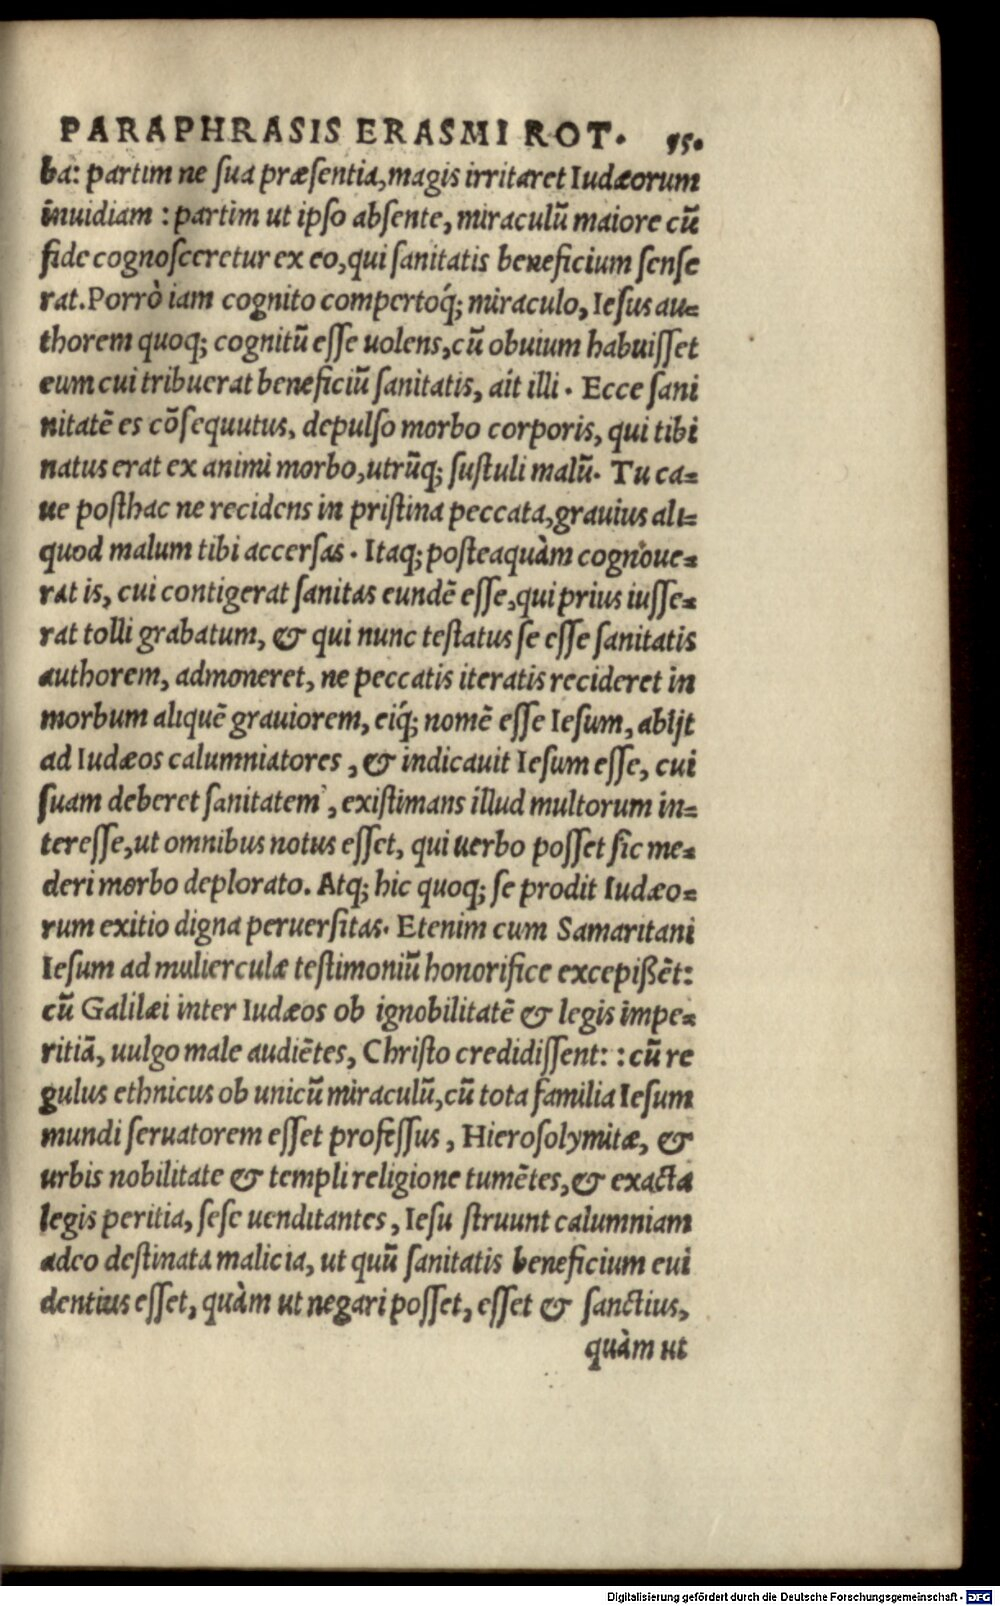 PARAPHRASIS ERASMI ROT. 95.
ba: partim ne ſua præſentia, magis irritaret Iudæorum
inuidiam : partim ut ipſo abſente, miraculũ maiore cũ
fide cognoſceretur ex eo, qui ſanitatis beneficium ſenſe
rat. Porrò iam cognito compertoq́; miraculo, Ieſus au=
thorem quoq; cognitũ eſſe uolens, cũ obuium habuiſſet
eum cui tribuerat beneficiũ ſanitatis, ait illi . Ecce ſani
nitatẽ es cõſequutus, depulſo morbo corporis, qui tibi
natus erat ex animi morbo, utrũq; ſuſtuli malũ. Tu ca=
ue poſthac ne recidens in priſtina peccata, grauius ali=
quod malum tibi accerſas . Itaq; poſteaquàm cognoue=
rat is, cui contigerat ſanitas eundẽ eſſe, qui prius iuſſe=
rat tolli grabatum, & qui nunc teſtatus ſe eſſe ſanitatis
authorem, admoneret, ne peccatis iteratis recideret in
morbum aliquẽ grauiorem, eiq́; nomẽ eſſe Ieſum, abijt
ad Iudæos calumniatores , & indicauit Ieſum eſſe, cui
ſuam deberet ſanitatem , exiſtimans illud multorum in=
tereſſe, ut omnibus notus eſſet, qui uerbo poſſet ſic me=
deri morbo deplorato. Atq; hic quoq; ſe prodit Iudæo=
rum exitio digna peruerſitas. Etenim cum Samaritani
Ieſum ad mulierculæ teſtimoniũ honorifice excepißẽt:
cũ Galilæi inter Iudæos ob ignobilitatẽ & legis impe=
ritiã, uulgo male audiẽtes, Chriſto credidiſſent: : cũ re
gulus ethnicus ob unicũ miraculũ, cũ tota familia Ieſum
mundi ſeruatorem eſſet profeſſus , Hieroſolymitæ, &
urbis nobilitate & templi religione tumẽtes, & exacta
legis peritia, ſeſe uenditantes , Ieſu ſtruunt calumniam
adeo deſtinata malicia, ut quũ ſanitatis beneficium eui
dentius eſſet, quàm ut negari poſſet, eſſet & ſanctius,
quàm ut
Digitalisierung gefördert durch die Deutsche Forschungsgemeinschaft - DFG